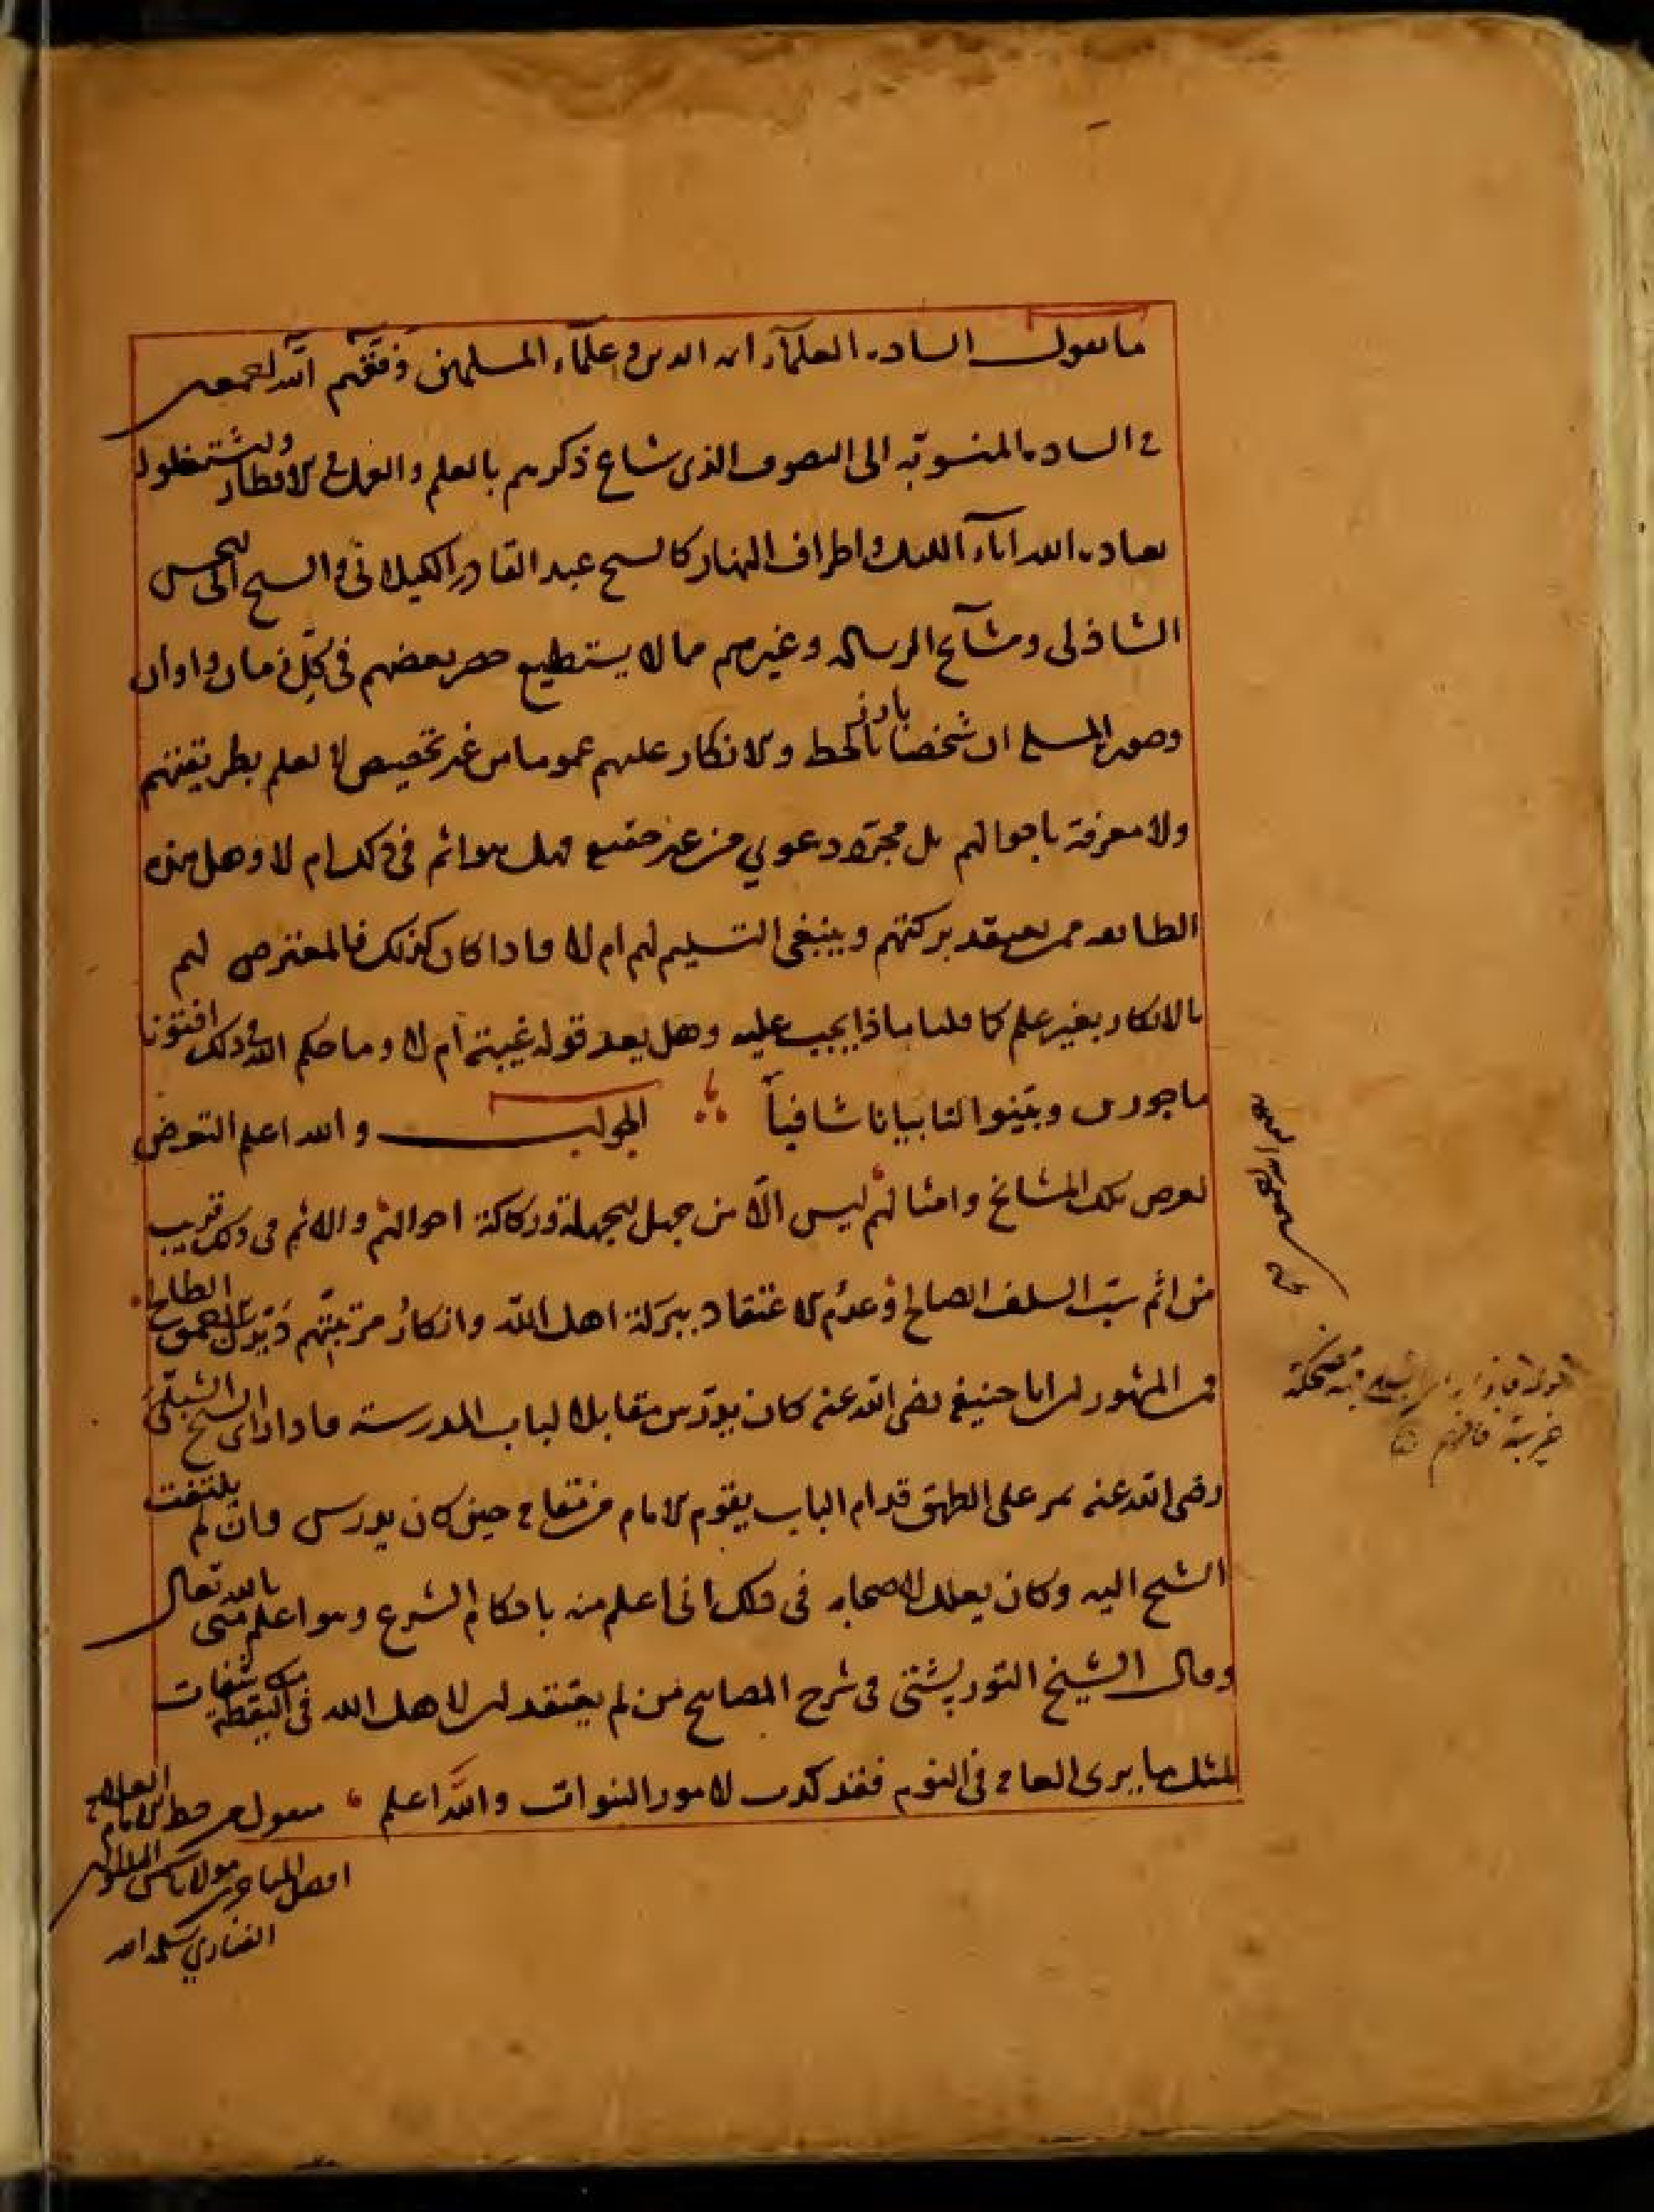 ما يقول السادة العلماء ائمة الدين و علماء المسلمين وفقهم الله اجمعين
في السادة المنسوبة الى التصوف الذى شاع ذكرهم بالعلم والعمل في الاقطار ويشتغلون
بعبادة الله اناء الليل واطراف النهار كالشيخ عبد القادر الكيلانى و الشيخ ابى الحسن
الشاذلى ومشايخ الرسالة وغيرهم مما لا يستطيع حصر بعضهم فى كل زمان واوان
وصورة المسئلة ان شخصا بالحط والانكار عليهم عموما من غير تخصيص لا لعلم بطريقتهم
ولا معرفة باحوالهم بل مجرد دعوي من غير حقيقة فهل هو اثم فى ذلك ام لا وهل هذه
الطائفة ممن يعتقد بركتهم وينبغى التسليم لهم ام لا فاذا كان كذلك فالمعترض لهم
بالانكار بغير علم كما قلنا ماذا يجب عليه وهل يعد قوله غيبة ام لا وما حكم الله فى ذلك افتونا
ماجورين وبينوا لنا بيانا شافيا الجواب والله اعلم التعرض
لعرض تلك المشائخ وامثالهم ليس الا من جهل الجهلة وركاكة احوالهم والاثم فى ذلك قريب
من اثم سب السلف الصالح وعدم الاعتقاد ببركة اهل الله وانكار مرتبتهم الطالح
فمن المشهور ان ابا حنيفة رضى الله عنه كان يدرس مقابلا لباب المدرسة فاذا راى الشيخ الشبلى
رضى الله عنه يمر على الطريق قدام الباب يقوم الامام من مقامه حين كان يدرس وان لم يلتفت
الشيخ اليه وكان يعلل لاصحابه فى ذلك انى اعلم منه باحكام الشرع وهو اعلم منى بالله تعالى
وقال الشيخ التوربشتى فى شرح المصابيح من لم يعتقد ان لاهل الله فى اليقظة
مثل ما يرى العامى فى النوم فقد كذب لامور النبوات والله اعلم منقول من خط الامام العلامة
افضل المتاخرين مولانا شمس
الفنارى سلمه الله